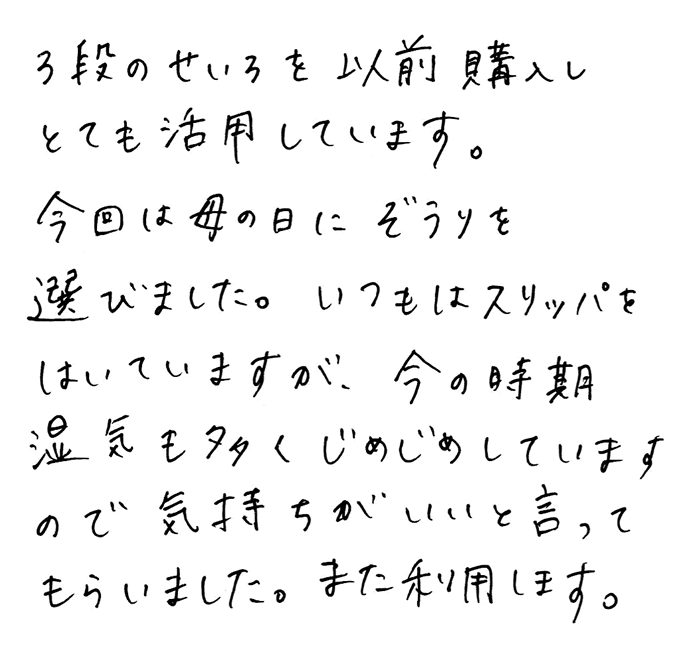 3段のせいろを以前購入し
とても活用しています。
今回は母の日にぞうりを
選びました。いつもはスリッパを
はいていますが、今の時期
湿気も多くじめじめしています
ので気持ちがいいと言って
もらいました。また利用します。